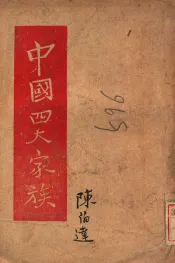 中國四大家族
陳伯達
596